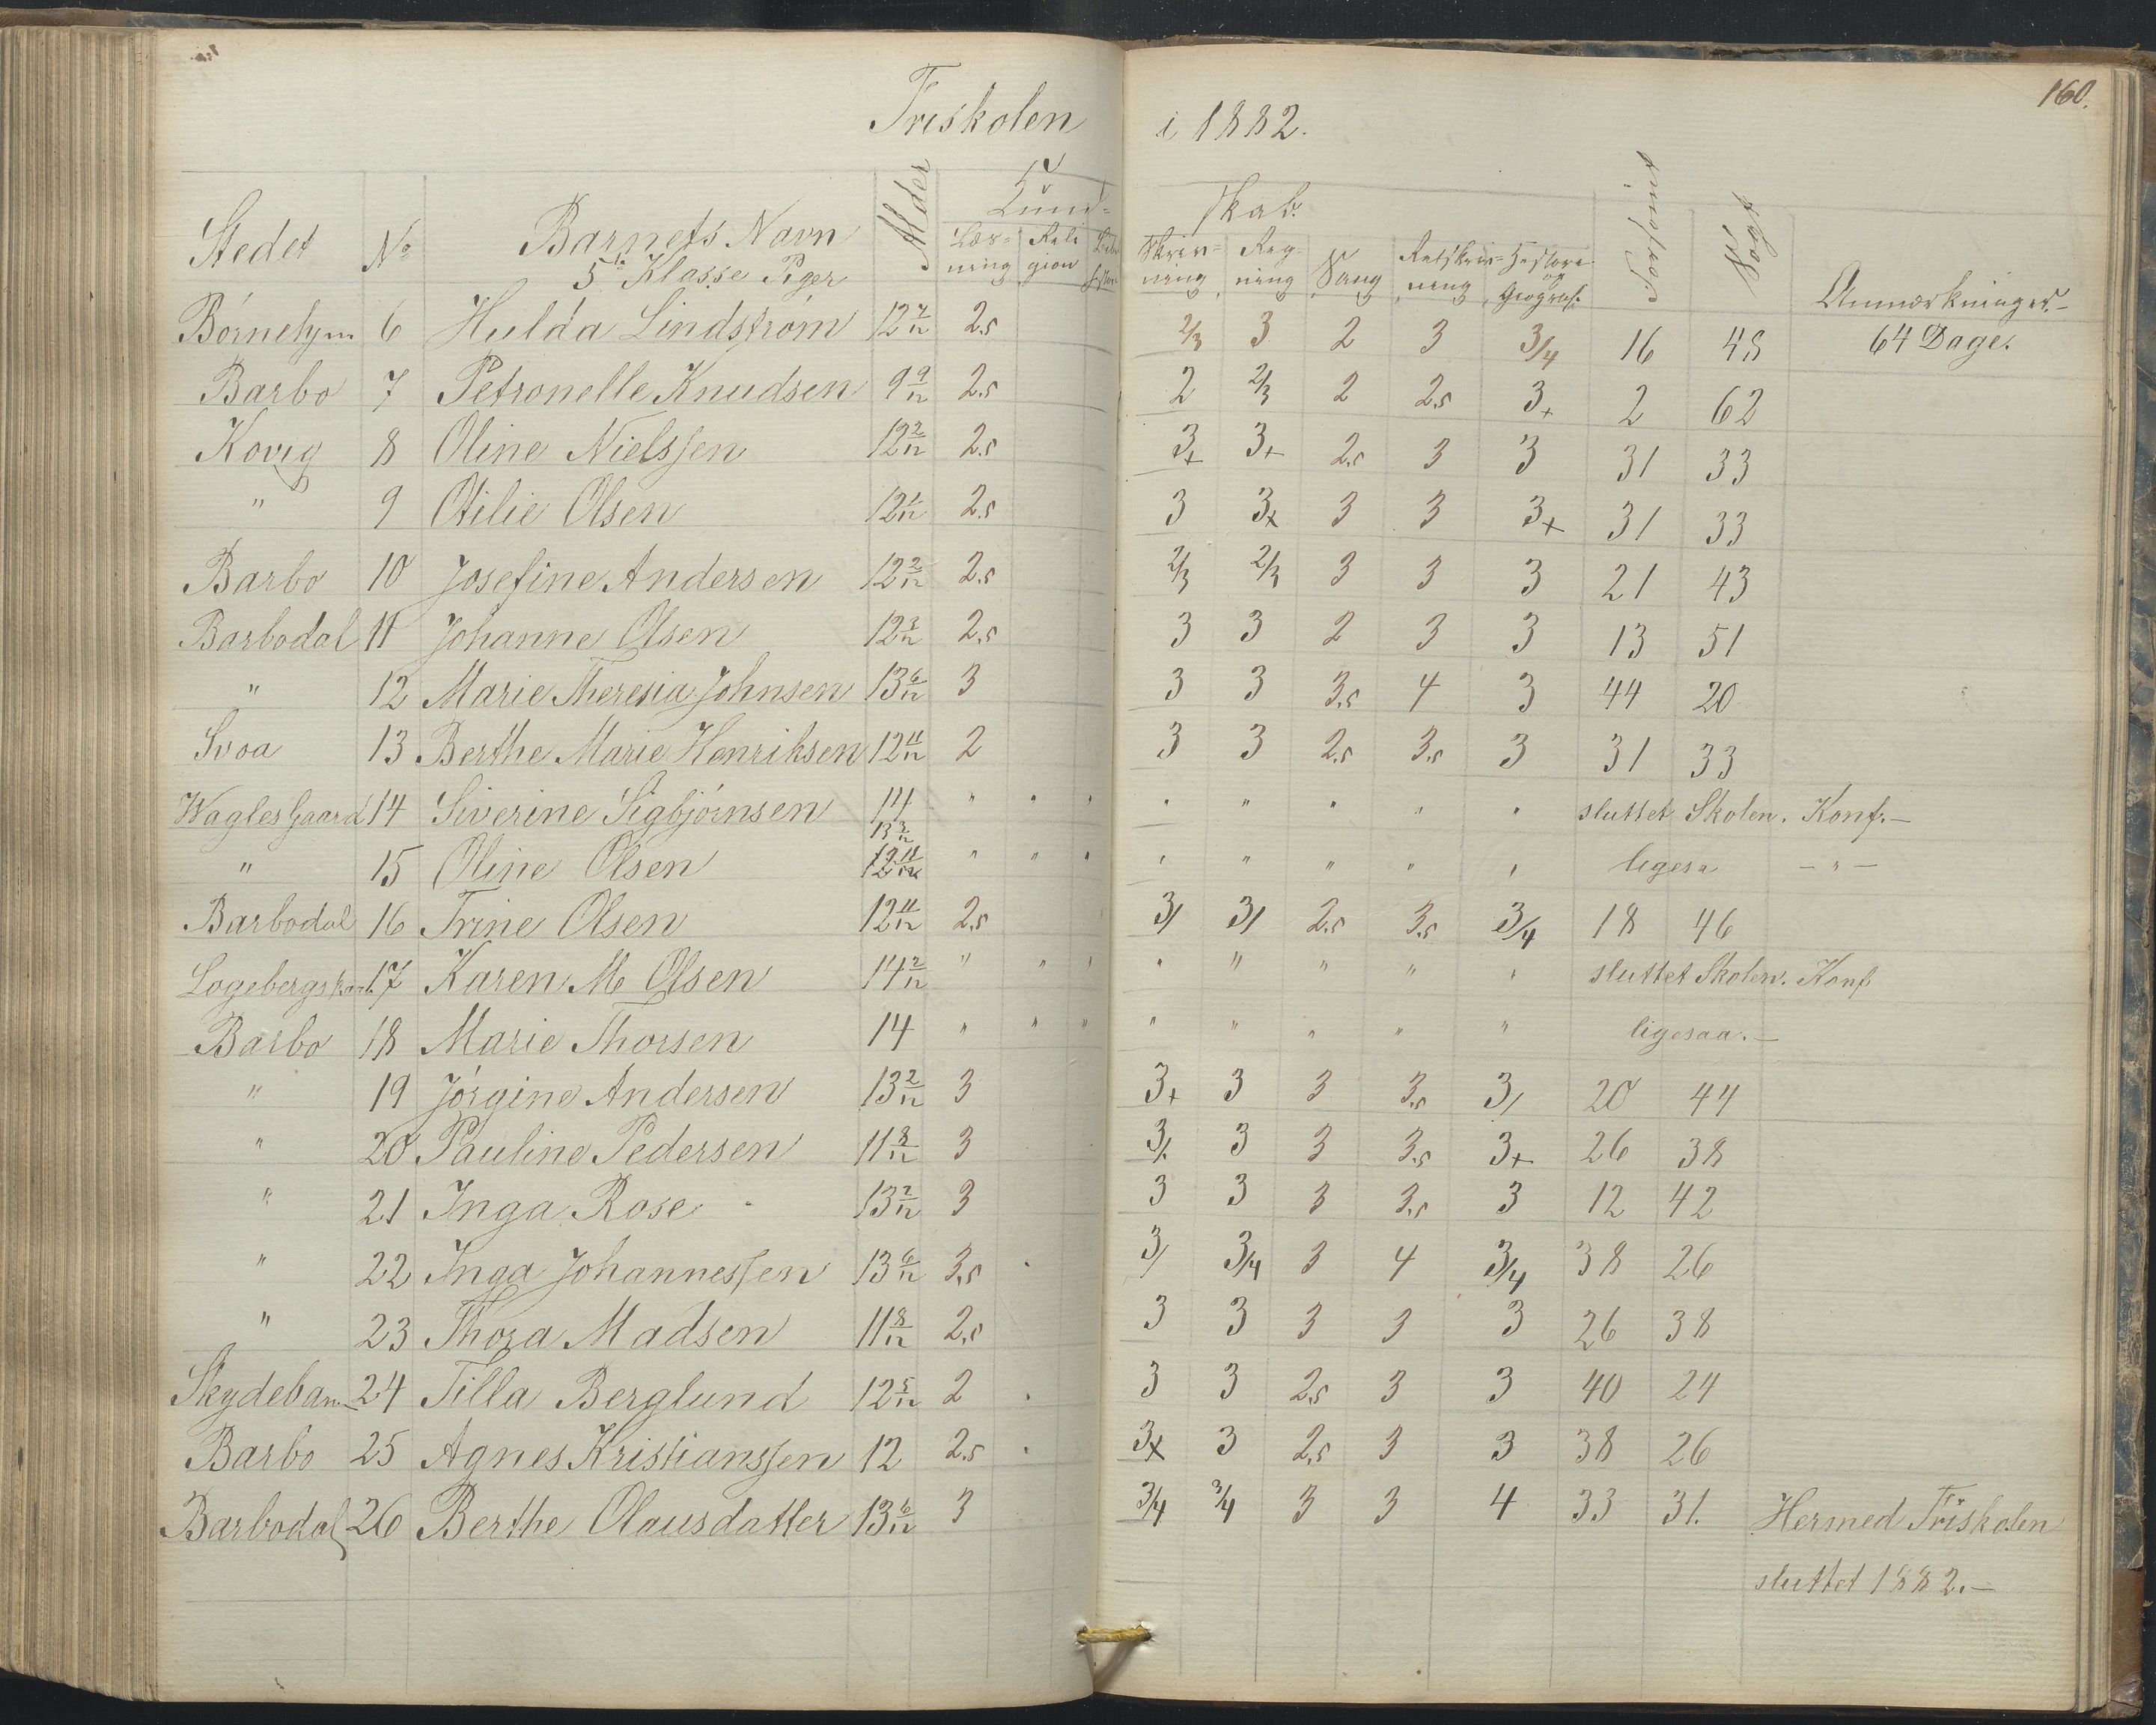 160.
Friskolen i 1882.
Stedet No Barnets Navn Alder Kund= skab. Forsømt Søgt Anmærkninger.-
5te Klasse Piger Læs=ning Reli gion Skriv=ning Reg=ning Sang Retskriv=ning Historie og Geografi
Börnehjm. 6 Hulda Lindström 12 7/12 2.5 2/3 3 2 3 3/4 16 48 64 Dage.
Barbo 7 Petronelle Knudsen 9 9/12 2.5 2 2/3 2 2.5 3+ 2 62
Kovig 8 Oline Nielssen 12 2/12 2.5 3+ 3+ 2.5 3 3 31 33
" 9 Otilie Olsen 12 1/12 2.5 3 3+ 3 3 3+ 31 33
Barbo 10 Josefine Andersen 12 2/12 2.5 2/3 2/3 3 3 3 21 43
Barbodal 11 Johanne Olsen 12 8/12 2.5 3 3 2 3 3 13 51
" 12 Marie Theresia Johnsen 13 6/12 3 3 3 3.5 4 3 44 20
Svoa 13 Berthe Marie Henriksen 12 11/12 2 3 3 2.5 3.5 3 31 33
Wagles Gaard 14 Siverine Sigbjörnsen 14 " " " " " " " " sluttet Skolen. Konf.-
" 15 Oline Olsen 13 2/12 " " " " " " " " ligesa - " -
Barbodal 16 Trine Olsen 12 11/12 2.5 3/ 3/ 2.5 3.5 3/4 18 46
17 Karen M Olsen 14 2/12 " " " " " " " " sluttet Skolen. Konf
Barbo 18 Marie Thorsen 14 " " " " " " " " ligesaa.-
" 19 Jörgine Andersen 13 2/12 3 3+ 3 3 3.5 3/ 20 44
" 20 Pauline Pedersen 11 8/12 3 3/. 3 3 3.5 3+ 26 38
" 21 Inga Rose 13 7/12 3 3 3 3 3.5 3 12 42
" 22 Inga Johannessen 13 6/12 3.5 3/ 3/4 3 4 3/4 38 26
" 23 Thora Madsen 11 8/12 2.5 3 3 3 3 3 26 38
Skydeban 24 Tilla Berglund 12 5/12 2 3 3 2.5 3 3 40 24
Barbo 25 Agnes Kristianssen 12 2.5 3+ 3 2.5 3 3 38 26
Barbodal 26 Berthe Olausdatter 13 6/12 3 3/4 3/4 3 3 4 33 31. Hermed Friskolen
sluttet 1882.-